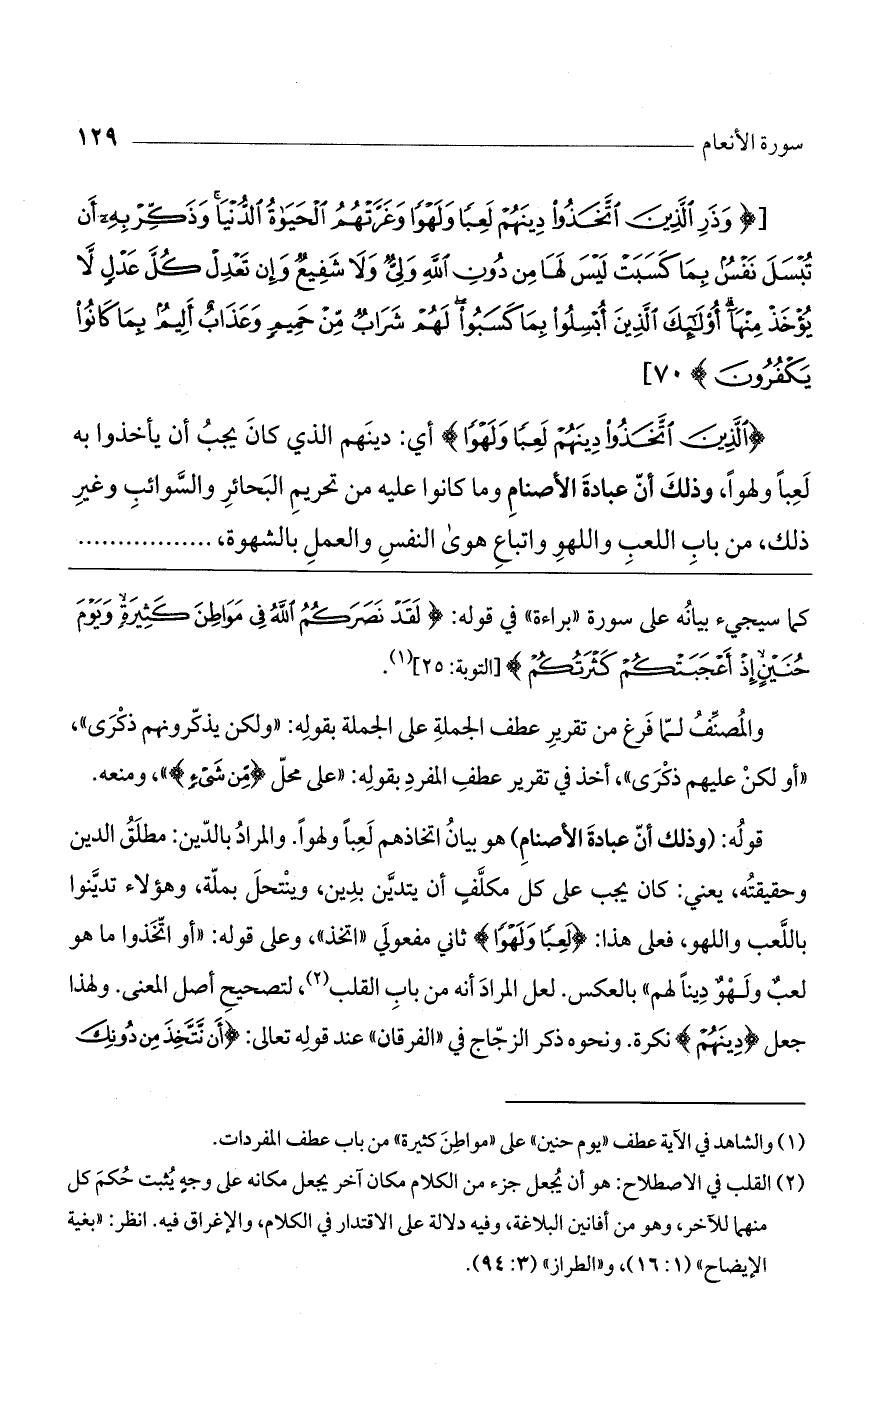 سورة الأنعام ١٢٩
[﴿ وَذَرِ ٱلَّذِينَ ٱتَّخَذُوا۟ دِينَهُمْ لَعِبًا وَلَهْوًا وَغَرَّتْهُمُ ٱلْحَيَوٰةُ ٱلدُّنْيَا ۚ وَذَكِّرْ بِهِۦٓ أَن
تُبْسَلَ نَفْسٌۢ بِمَا كَسَبَتْ لَيْسَ لَهَا مِن دُونِ ٱللَّهِ وَلِىٌّ وَلَا شَفِيعٌ وَإِن تَعْدِلْ كُلَّ عَدْلٍ لَّا
يُؤْخَذْ مِنْهَآ ۗ أُو۟لَٰٓئِكَ ٱلَّذِينَ أُبْسِلُوا۟ بِمَا كَسَبُوا۟ ۖ لَهُمْ شَرَابٌ مِّنْ حَمِيمٍ وَعَذَابٌ أَلِيمٌۢ بِمَا كَانُوا۟
يَكْفُرُونَ ﴾ ٧٠]
﴿ٱلَّذِينَ ٱتَّخَذُوا۟ دِينَهُمْ لَعِبًا وَلَهْوًا﴾ أي: دينَهم الذي كانَ يجبُ أن يأخذوا به
لَعِباً ولهواً، وذلكَ أنّ عبادةَ الأصنامِ وما كانوا عليه من تحريمِ البَحائرِ والسَّوائبِ وغيرِ
ذلك، من بابِ اللعبِ واللهوِ واتباعِ هوىٰ النفسِ والعملِ بالشهوة، .................
كما سيجيء بيانُه على سورة «براءة» في قوله: ﴿ لَقَدْ نَصَرَكُمُ ٱللَّهُ فِى مَوَاطِنَ كَثِيرَةٍ ۙ وَيَوْمَ
حُنَيْنٍ ۙ إِذْ أَعْجَبَتْكُمْ كَثْرَتُكُمْ ﴾ [التوبة: ٢٥](١).
والمُصنِّفُ لـمّا فَرغ من تقريرِ عطف الجملةِ على الجملة بقولِه: «ولكن يذكّرونهم ذكْرَى»،
«أو لكنْ عليهم ذكْرَى»، أخذ في تقرير عطفِ المفردِ بقولِه: «على محلّ ﴿مِّن شَىْءٍ﴾»، ومنعه.
قولُه: (وذلك أنّ عبادةَ الأصنامِ) هو بيانُ اتخاذهم لَعِباً ولهواً. والمرادُ بالدّين: مطلَقُ الدين
وحقيقتُه، يعني: كان يجب على كل مكلَّفٍ أن يتديَّن بدِين، وينْتحلَ بملّة، وهؤلاء تديَّنوا
باللَّعب واللهو، فعلى هذا: ﴿لَعِبًا وَلَهْوًا﴾ ثاني مفعولَي «اتخذ»، وعلى قوله: «أو اتّخَذوا ما هو
لعبٌ ولَـهْوٌ دِيناً لهم» بالعكس. لعل المرادَ أنه من بابِ القلب(٢)، لتصحيحِ أصل المعنى. ولهذا
جعل ﴿دِينَهُمْ ﴾ نكرة. ونحوه ذكر الزجّاج في «الفرقان» عند قولِه تعالى: ﴿أَن نَّتَّخِذَ مِن دُونِكَ
(١) والشاهد في الآية عطف «يوم حنين» على «مواطِنَ كثيرة» من باب عطف المفردات.
(٢) القلب في الاصطلاح: هو أن يُجعل جزء من الكلام مكان آخر يجعل مكانه على وجهٍ يُثبت حُكمَ كل
منهما للآخر، وهو من أفانين البلاغة، وفيه دلالة على الاقتدار في الكلام، والإغراق فيه. انظر: «بغية
الإيضاح» (١: ١٦)، و«الطراز» (٣: ٩٤).